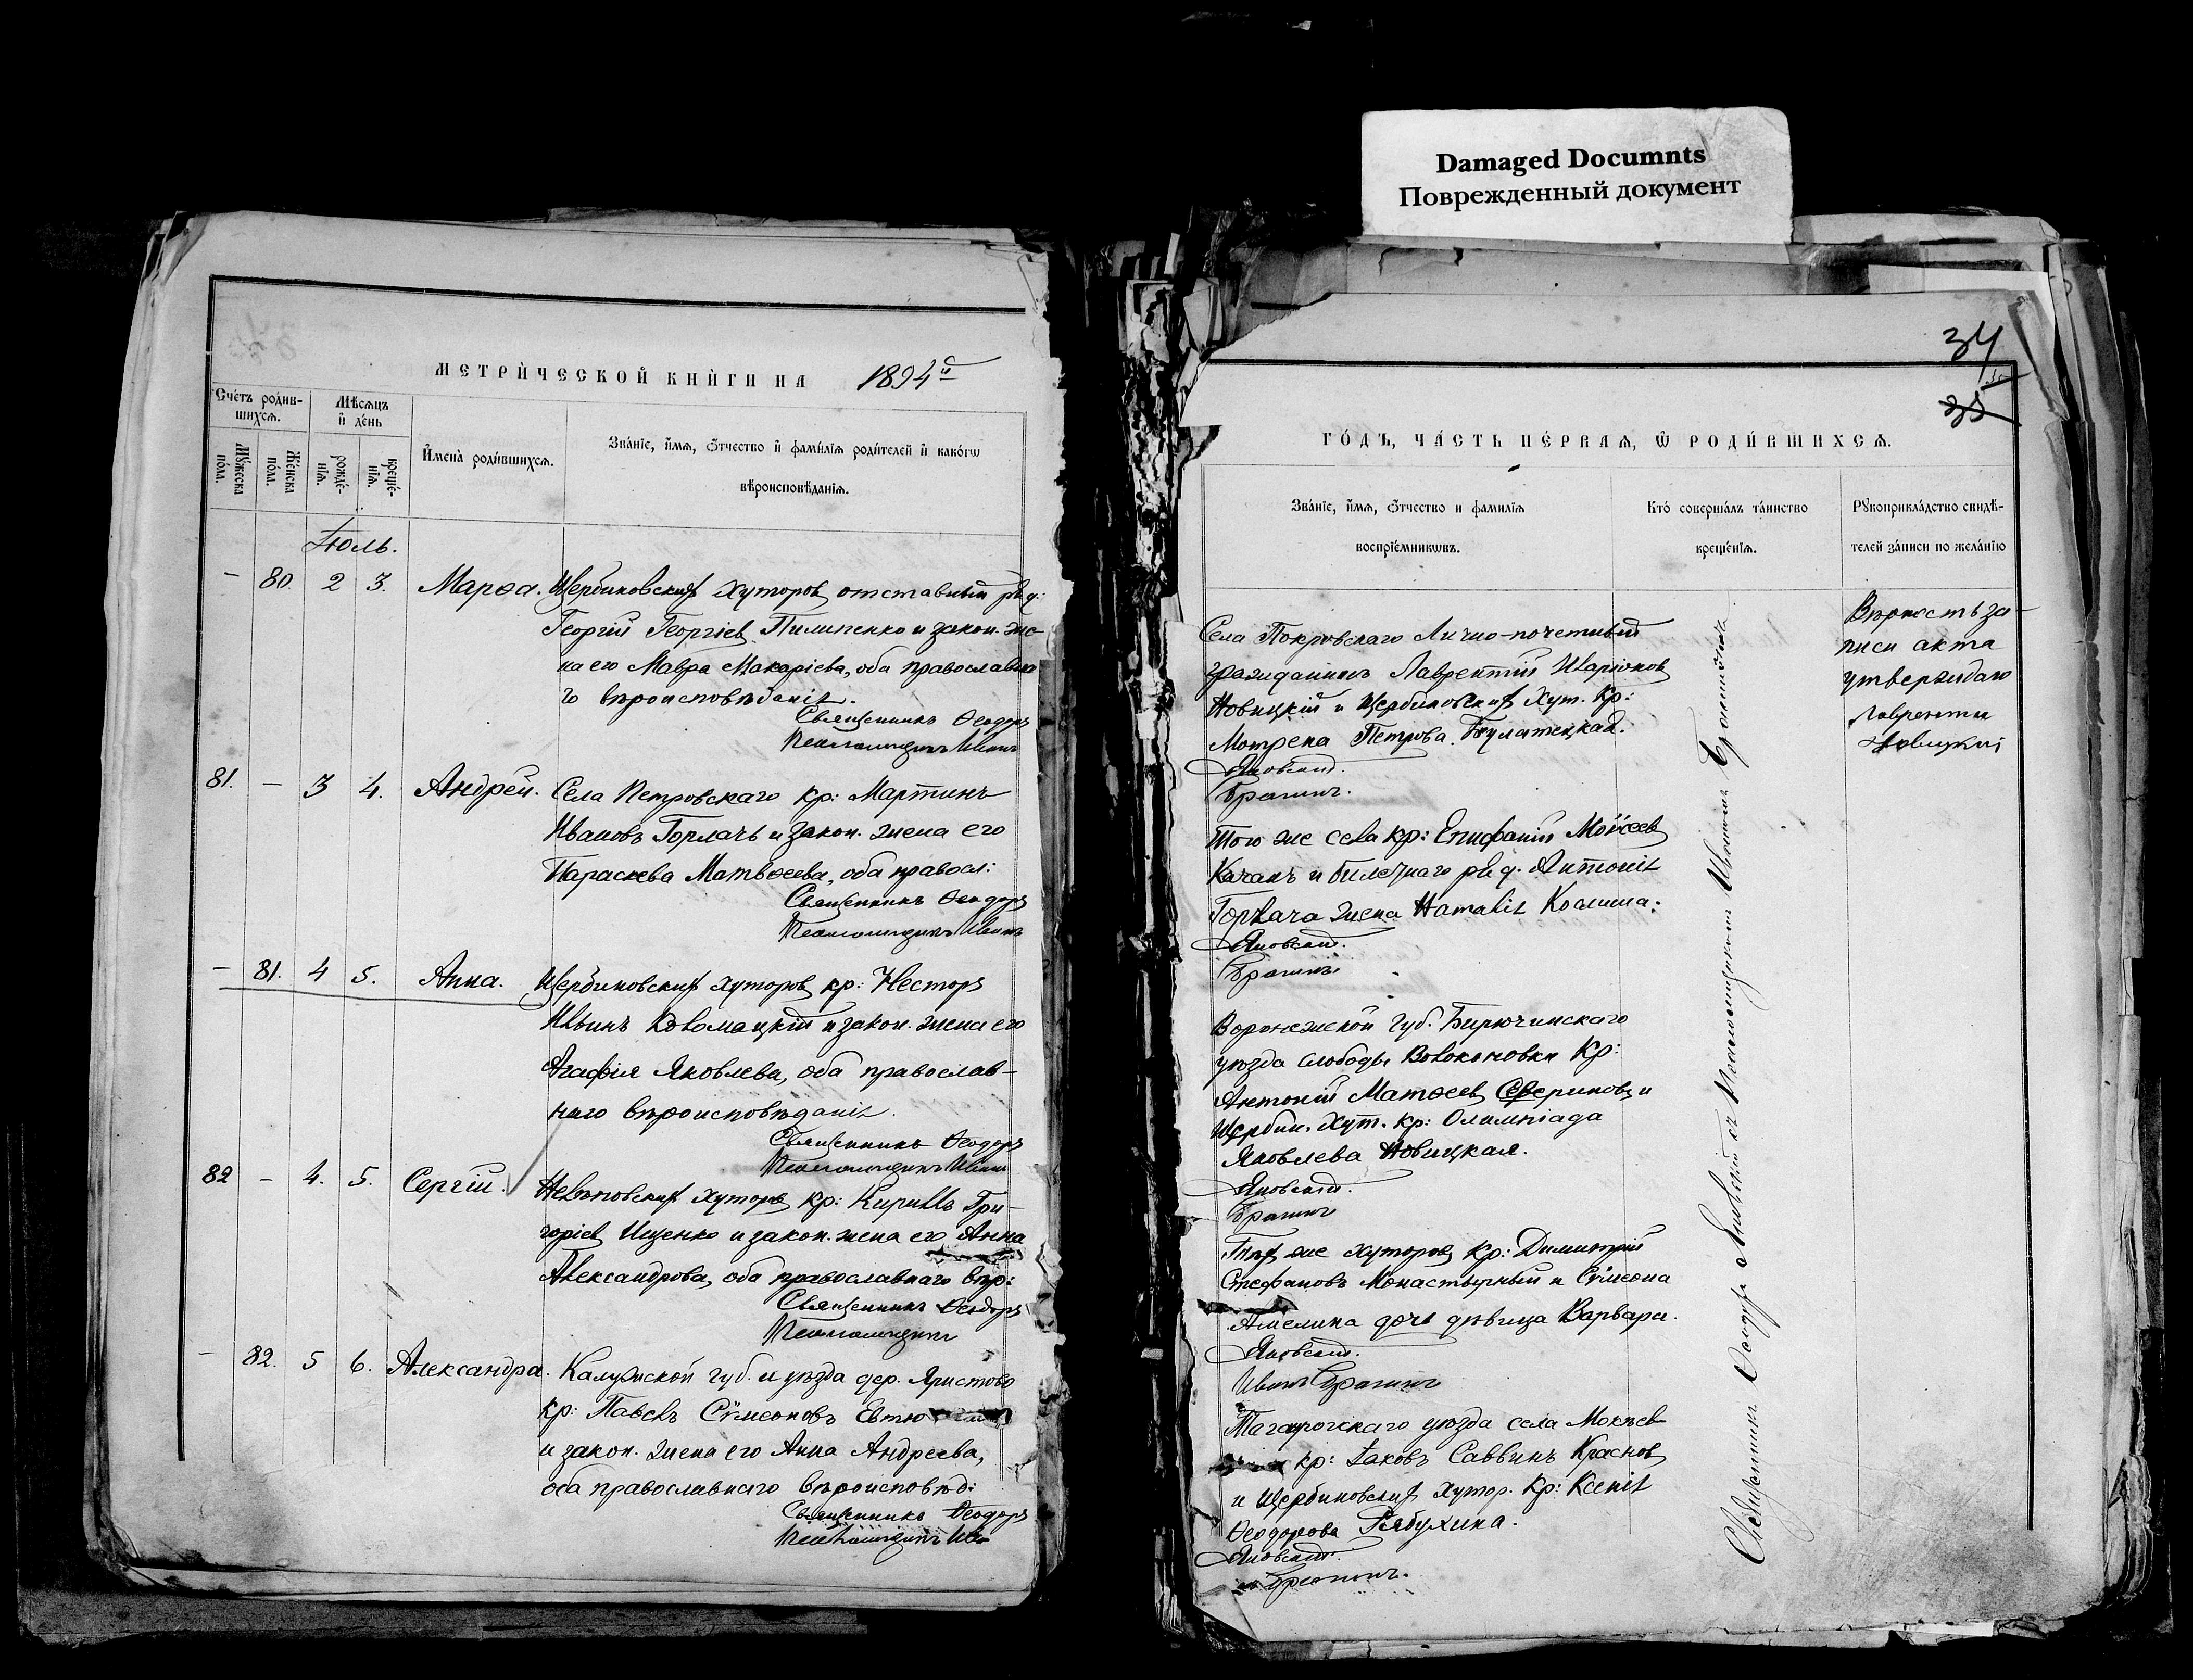 Damaged Documnts
Поврежденный документ
МЕТРИ́ЧЕСКОЙ КНИ́ГИ НА 1894й
Сче́тъ роди́в-
шихсѧ.
Мѣ́сѧцъ
и҆ де́нь
Мꙋ́жеска
по́ла.
Же́нска
по́ла.
рожде́-
нїѧ.
креще́-
нїѧ.
И҆мена̀ роди́вшихсѧ.
Зва́нїе, и҆́мѧ, ѻ҆́тчество и҆ фами́лїѧ роди́телей и҆ како́гѡ
вѣроисповѣ́данїѧ.
Іюль.
— 80. 2 3. Марѳа. Щербиновскихъ Хуторовъ отставный ряд:
Георгій Георгіевъ Пилипенко и закон. же-
на его Мавра Макаріева, оба православна
го вѣроисповѣданія.
Священникъ Ѳеодоръ
Псаломщикъ Иванъ
81. — 3 4. Андрей. Села Петровскаго кр: Мартинъ
Ивановъ Горлачъ и закон. жена его
Параскева Матвѣева, оба правосл:
Священникъ Ѳеодоръ
Псаломщикъ Иванъ
— 81. 4 5. Анна. Щербиновскихъ хуторовъ кр: Несторъ
Ильинъ Коломацкій и закон. жена его
Агафія Яковлева, оба православ-
наго вѣроисповѣданія.
Священникъ Ѳеодоръ
Псаломщикъ Иванъ
82 — 4. 5. Сергій. Нелѣповскихъ хуторовъ кр: Кириллъ Гри-
горіевъ Ищенко и закон. жена его Анна
Александрова, оба православнаго вѣр:
Священникъ Ѳеодоръ
Псаломщикъ
— 82. 5 6. Александра. Калужской губ. и уѣзда дер.
кр: Павелъ Сѵмеоновъ
и закон. жена его Анна Андреева,
оба православнаго вѣроисповѣд:
Священникъ Ѳеодоръ
Псаломщикъ
34
35
ГО́ДЪ, ЧА́СТЬ ПЕ́РВАѦ, Ѡ҆ РОДИ́ВШИХСѦ.
Зва́нїе, и҆́мѧ, ѻ҆́тчество и фами́лїѧ
воспрїе́мникѡвъ.
Кто̀ соверша́лъ та́инство
креще́нїѧ.
Рꙋкоприкла́дство свидѣ́-
телей за́писи по жела́нїю
Села Покровскаго Лично-почетный
гражданинъ Лаврентій Иларіоновъ
Новицкій и Щербиновскихъ Хут. Кр:
Мотрена Петрова Булатецкая.
Яновскій.
Брагинъ.
Вѣрность за-
писи акта
утверждаю
Лаврентій
Новицкій
Того же села кр: Епифаній Моѵсеевъ
Качанъ и билетнаго ряд. Антонія
Горлача жена Наталія Козмина:
Яновскій.
Брагинъ
Воронежской губ. Бирючинскаго
уѣзда слободы Волоконовки Кр:
Антоній Матѳеевъ Севериновъ и
Щербин. Хут. кр: Олимпіада
Яковлева Новицкая.
Яновскій.
Брагинъ
Тѣхъ же хуторовъ Кр: Димитрій
Стефановъ Монастырный и Сѵмеона
Амелина дочь дѣвица Варвара.
Яновскій.
Иванъ Брагинъ
Таганрогскаго уѣзда села Макѣев-
кр: Іаковъ Саввинъ Красновъ
и Щербиновскихъ Хутор. Кр: Ксенія
Ѳеодорова Рябухина.
Яновскій.
Брагинъ.
Священникъ Ѳеодоръ Яновскій съ Псаломщикомъ Иваномъ Брагинымъ